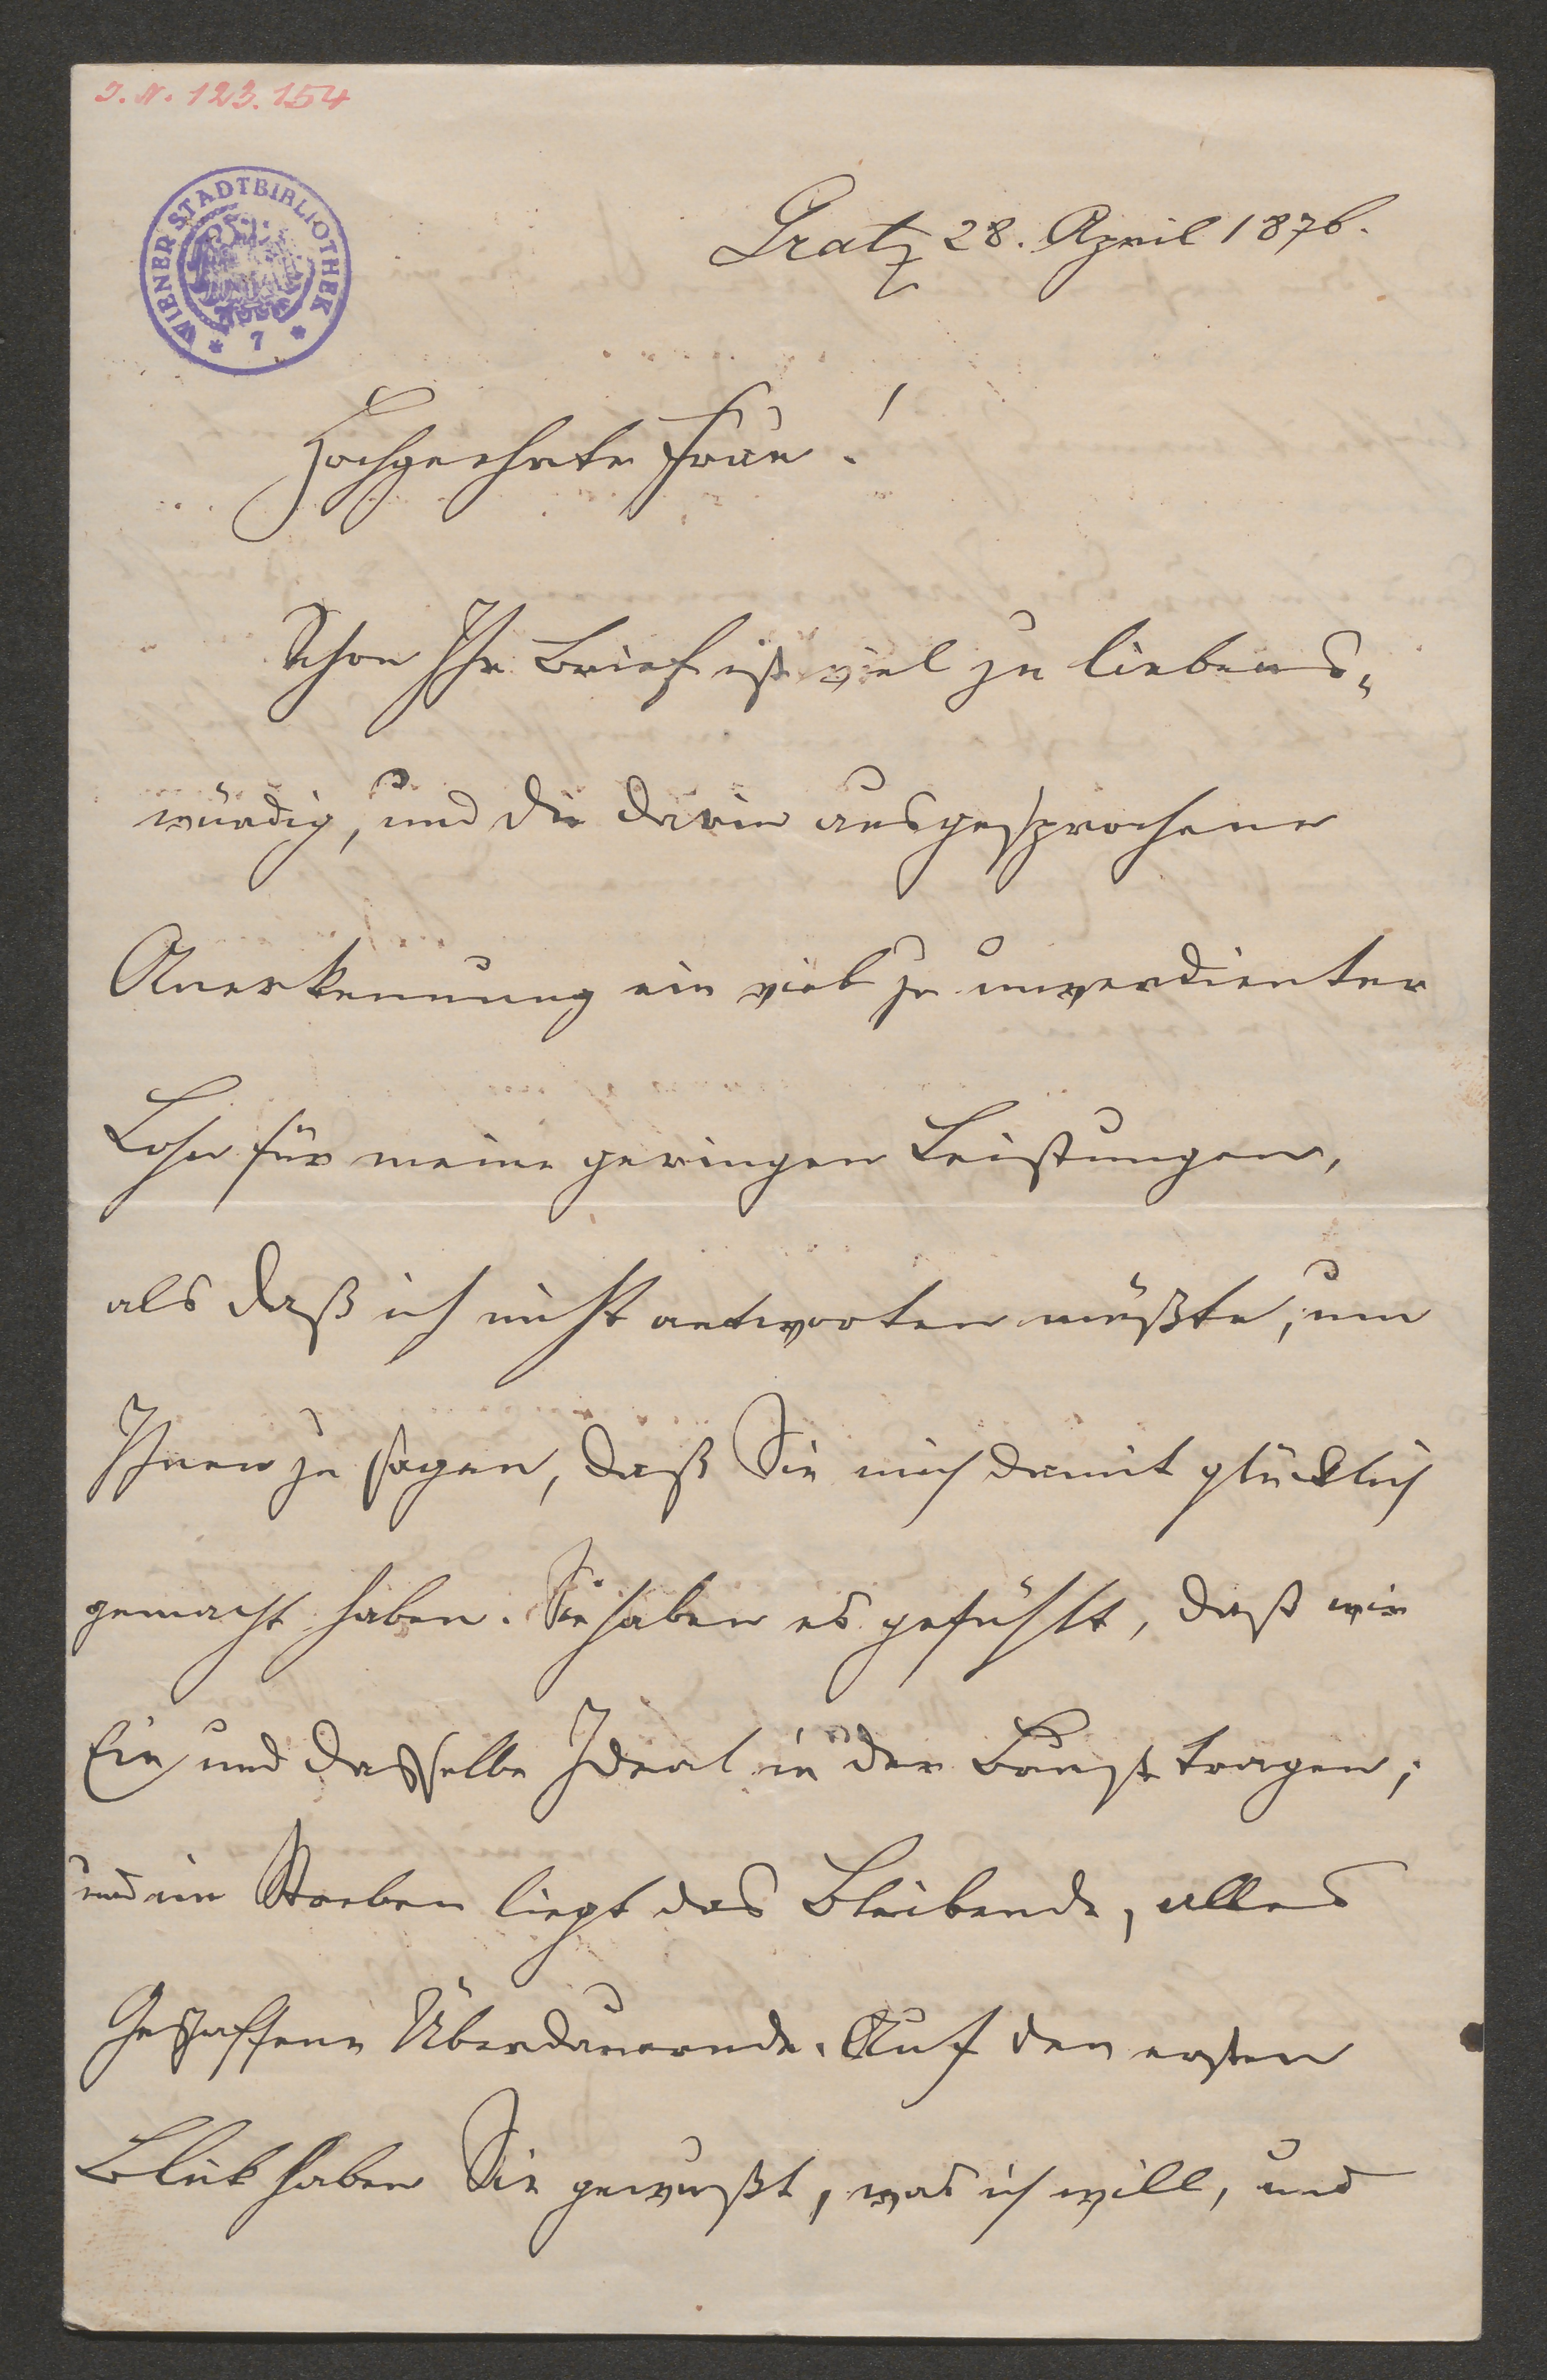 I. N. 123.154
WIENER STADTBIBLIOTHEK
* 7 *
Gratz 28. April 1876.
Hochgeehrte Frau!
Schon Ihr Brief ist viel zu liebens„
würdig, und die darin ausgesprochene
Anerkennung ein viel zu unverdienter
Lohn für meine geringen Leistungen,
als daß ich nicht antworten müßte, um
Ihnen zu sagen, daß Sie mich damit glücklich
gemacht haben. Sie haben es gefühlt, daß wir
Ein und dasselbe Ideal in der Brust tragen;
und im Streben liegt das Bleibende, alles
Geschaffene Überdauernde. Auf den ersten
Blick haben Sie gewußt, was ich will, und